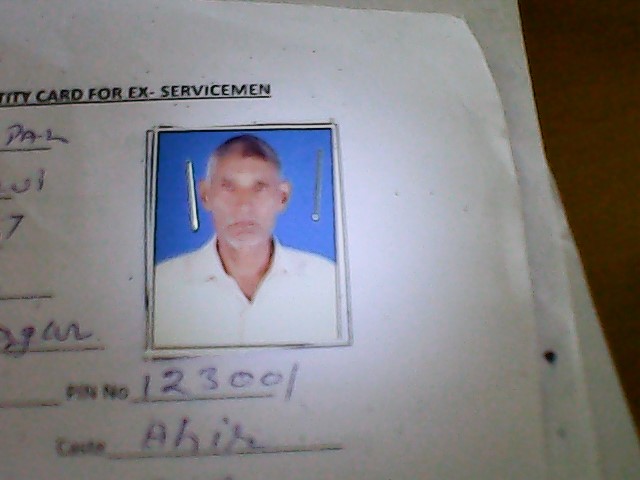 TITY CARD FOR EX- SERVICEMEN
PAL
7
PIN No 123001
Caste Ahir